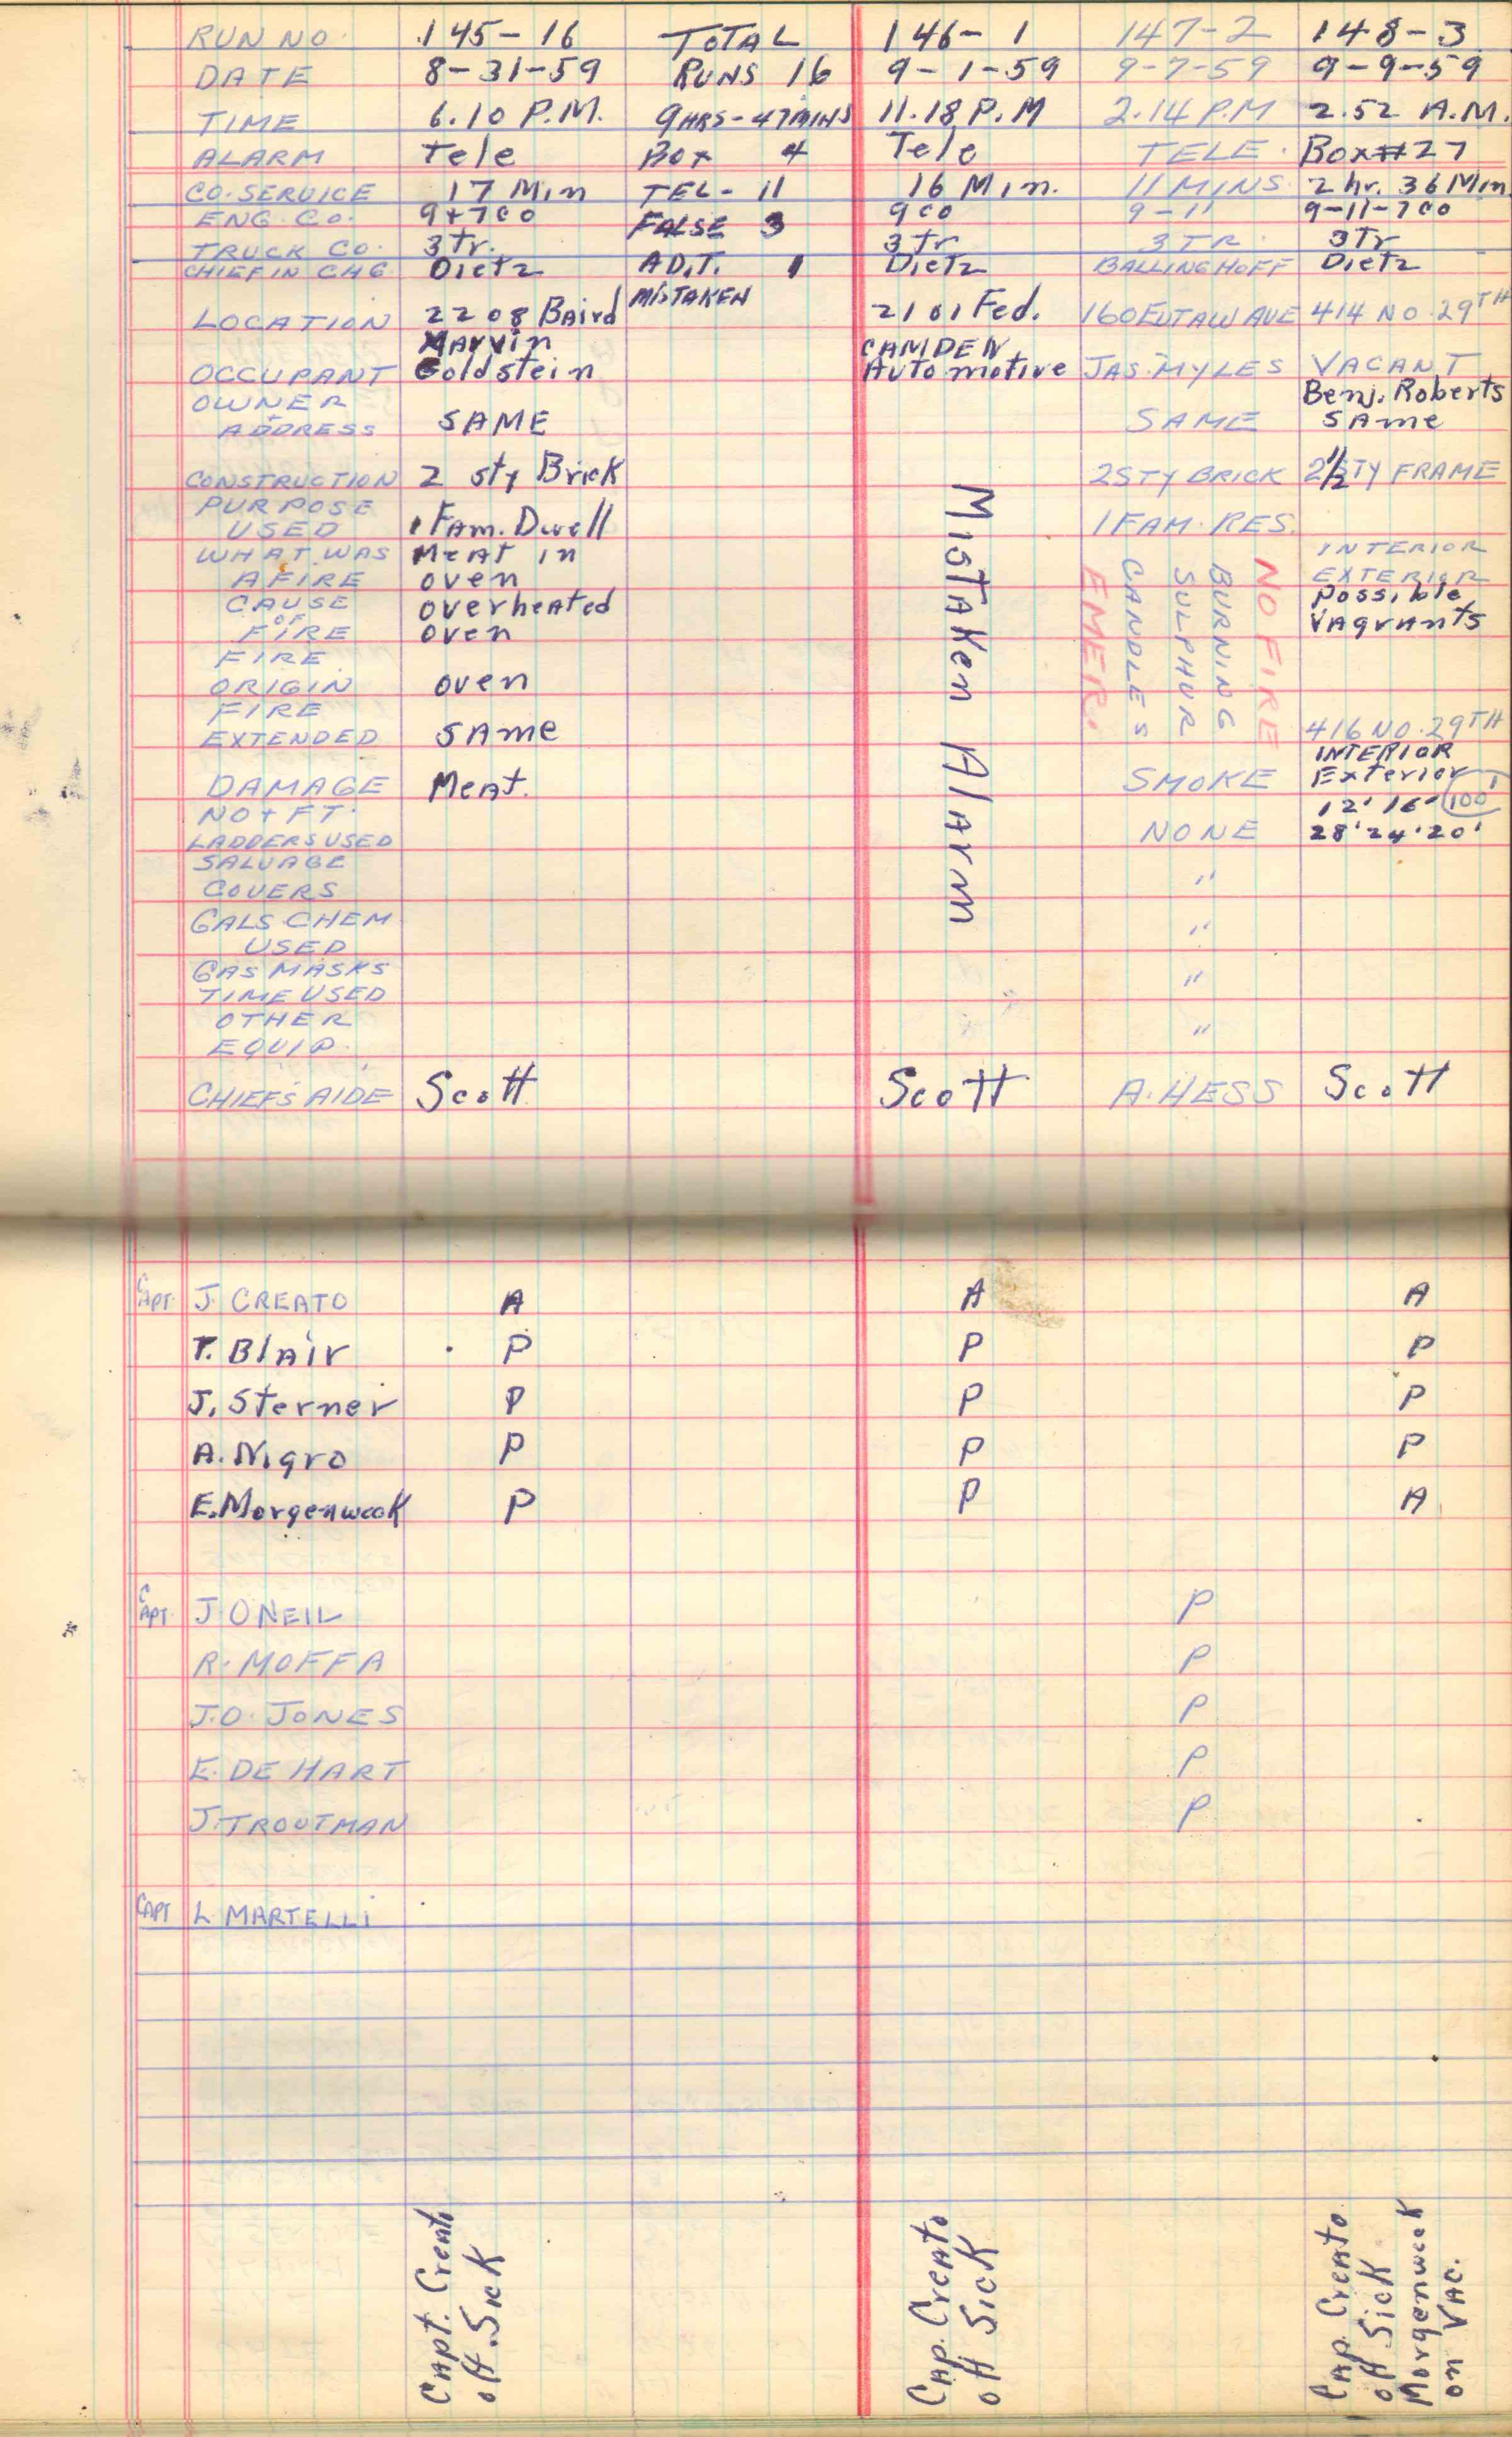 RUN NO. 145-16 TOTAL 146-1 147-2 148-3
DATE 8-31-59 RUNS 16 9-1-59 9-7-59 9-9-59
TIME 6.10 P.M. 9HRS-47MINS 11.18 P.M 2.14 P.M 2.52 A.M.
ALARM Tele Box 4 Tele TELE. Box#27
CO. SERVICE 17 Min TEL- 11 16 Min. 11 MINS. 2 hr. 36 Min
ENG. CO. 9+700 FALSE 3 900 9-11 9-11-700
TRUCK CO. 3 Tr. 3 Tr 3 TR. 3Tr
CHIEF IN CHG. Dietz AD.T. 1 Dietz BALLINGHOFF Dietz
MISTAKEN
LOCATION 2208 Baird 2101 Fed. 160 EUTAW AVE 414 NO. 29TH
Marvin CAMDEN
OCCUPANT Goldstein Automotive JAS. MYLES VACANT
OWNER Benj. Roberts
+
ADDRESS SAME SAME SAme
CONSTRUCTION 2 sty Brick 2STY BRICK 2½STY FRAME
PURPOSE
USED 1 Fam. Dwell 1 FAM. RES.
WHAT WAS MeAt in INTERIOR
AFIRE oven EXTERIOR
CAUSE overheated Possible
OF
FIRE oven VAgrAnts
FIRE
ORIGIN oven
FIRE
EXTENDED SAme 416 NO. 29TH
INTERIOR
DAMAGE MeAt. SMOKE Exterior
NO + FT. 12' 16' 100'
LADDERS USED NONE 28' 24' 20'
SALVAGE
COVERS "
GALS CHEM
USED "
GAS MASKS
TIME USED "
OTHER
EQUIP. "
MisTAken AlArm
NO FIRE
BURNING
SULPHUR
CANDLES
EMER.
CHIEFS AIDE Scott Scott A. HESS Scott
CAPT. J. CREATO A A A
T. BlAir P P P
J. Sterner P P P
A. Nigro P P P
E. Morgenweck P P A
CAPT. J ONEIL P
R. MOFFA P
J.O. JONES P
E. DE HART P
J. TROUTMAN P
CAPT L MARTELLI
CApt. CreAto
off. Sick
CAp. CreAto
off Sick
CAp. CreAto
off Sick
Morgenweck
on VAC.